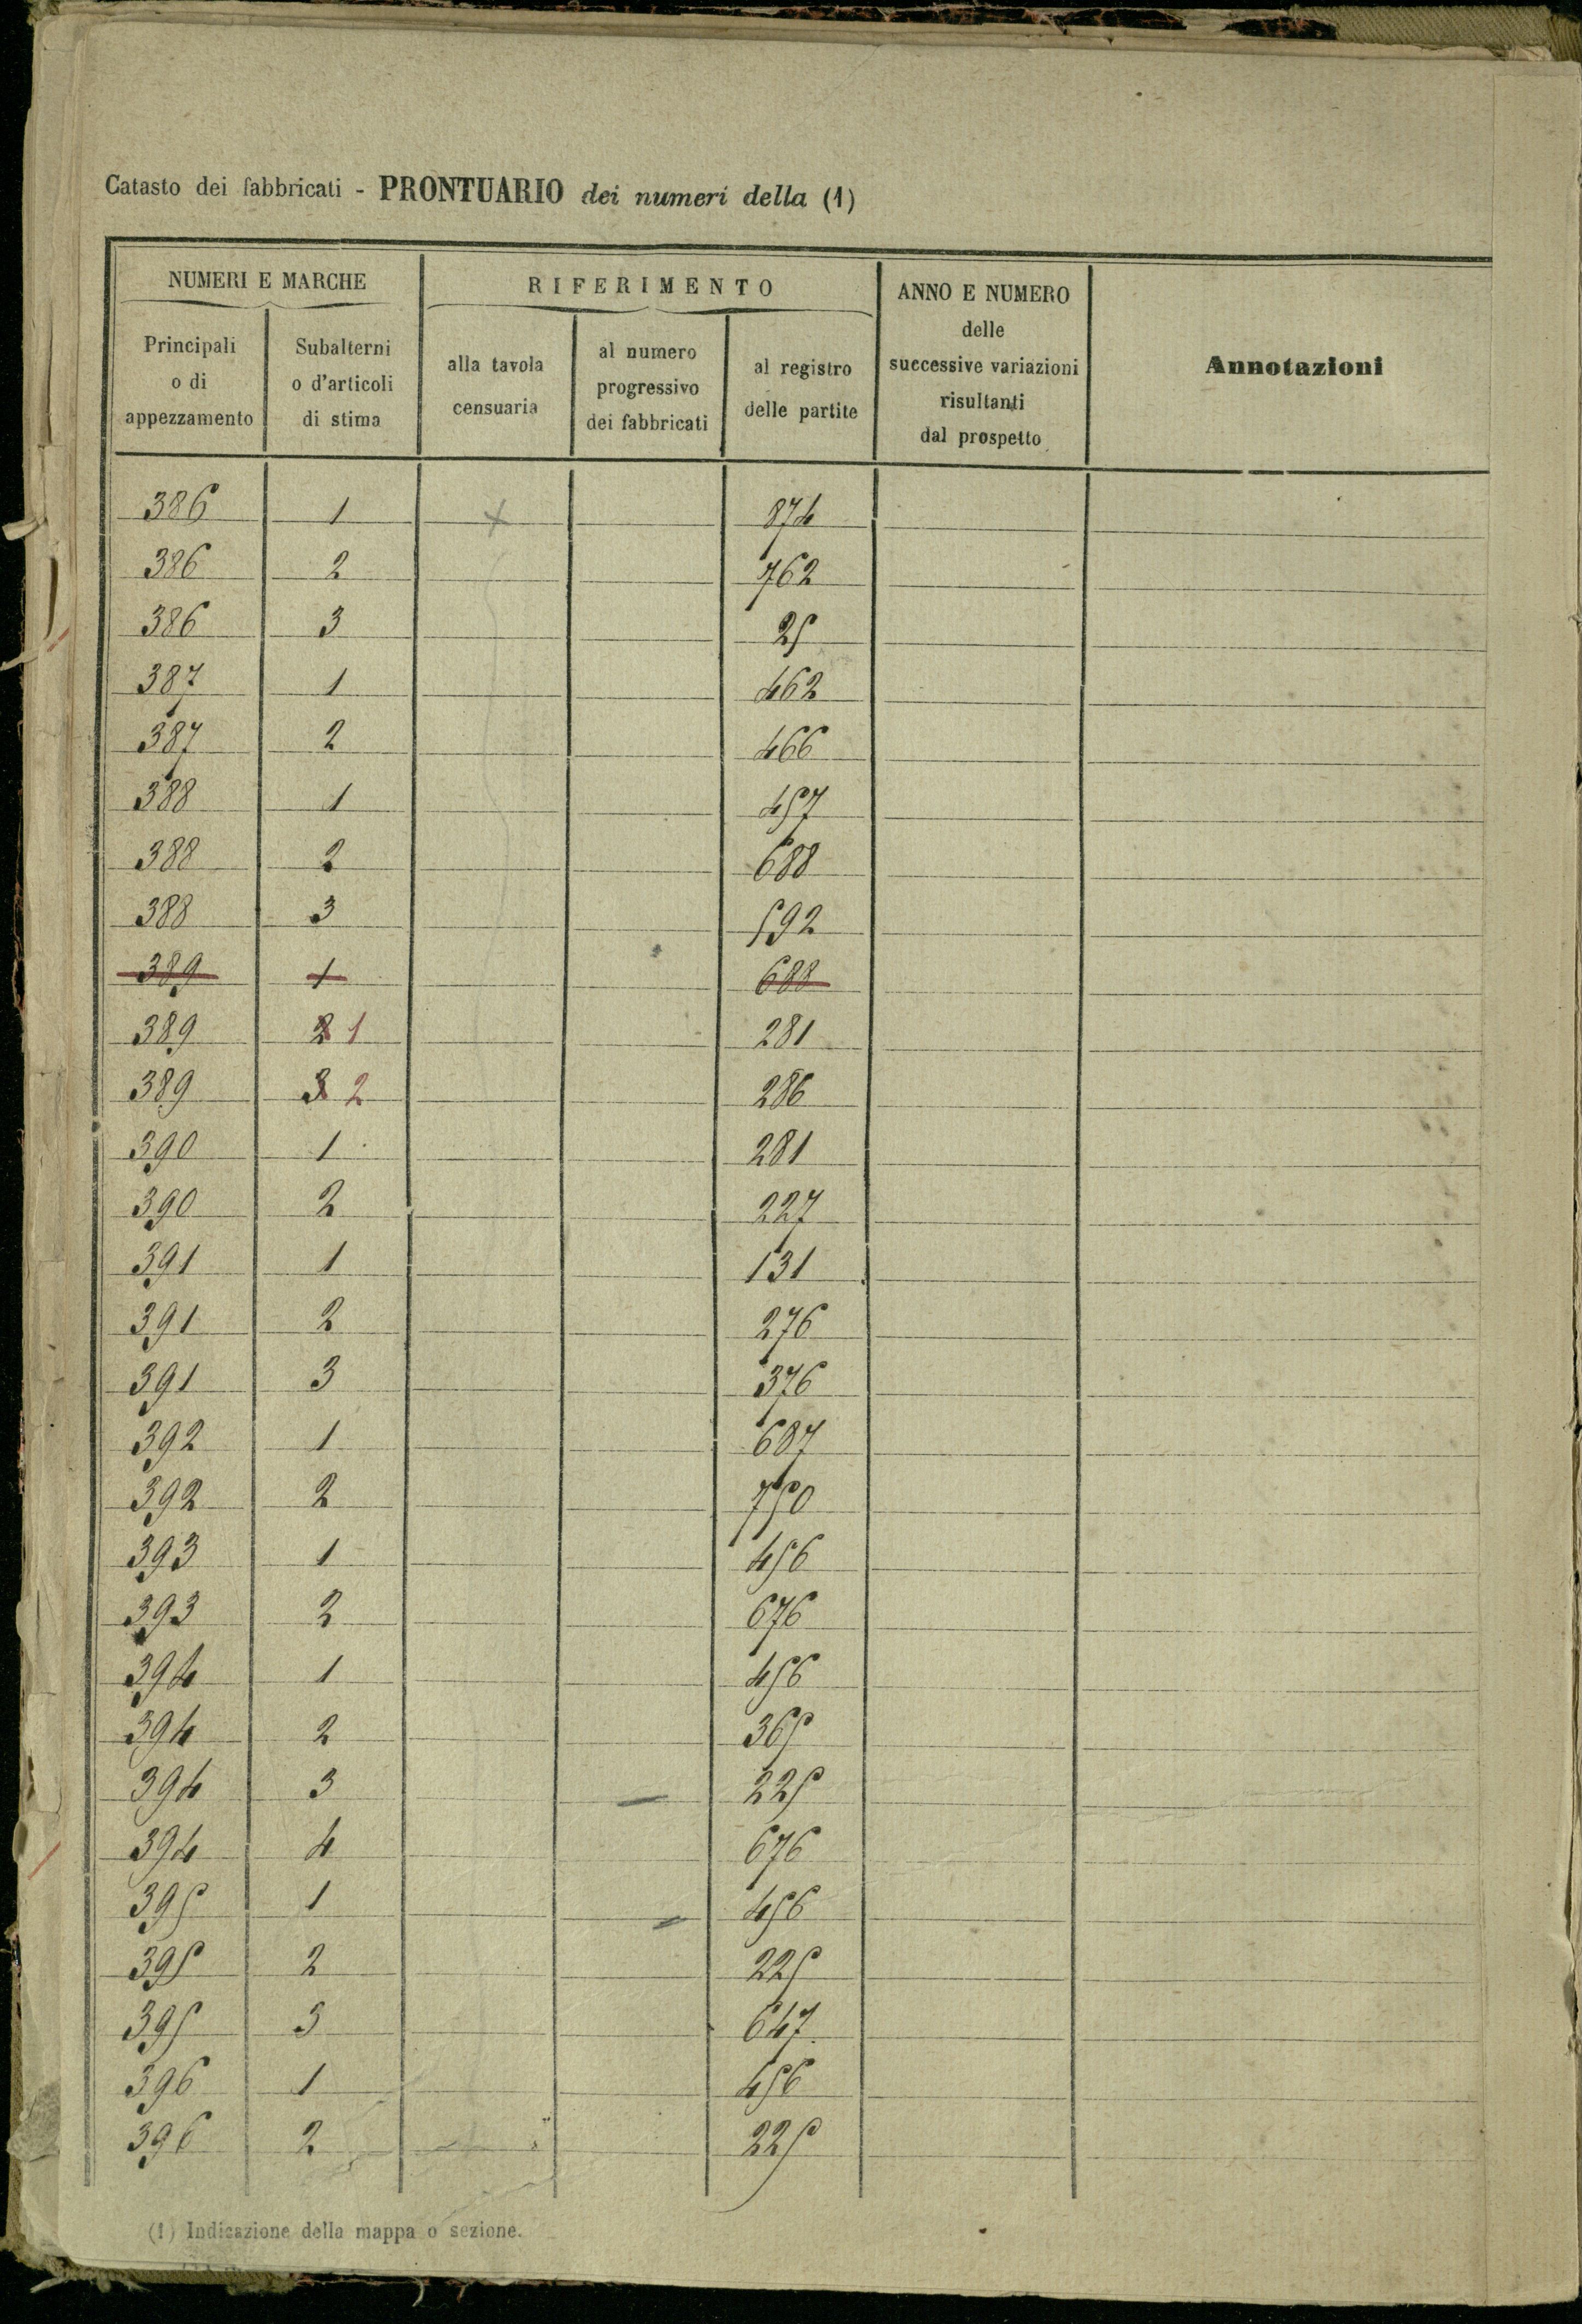 Catasto dei fabbricati - PRONTUARIO dei numeri della (1)
NUMERI E MARCHE
RIFERIMENTO
ANNO E NUMERO
delle
successive variazioni
risultanti
dal prospetto
Annotazioni
Principali
o di
appezzamento
Subalterni
o d'articoli
di stima
alla tavola
censuaria
al numero
progressivo
dei fabbricati
al registro
delle partite
386 1 x 874
386 2 762
386 3 25
387 1 462
387 2 466
388 1 457
388 2 688
388 3 592
389 1 688
389 2 1 281
389 3 2 286
390 1 281
390 2 227
391 1 131
391 2 276
391 3 376
392 1 687
392 2 750
393 1 456
393 2 676
394 1 456
394 2 365
394 3 225
394 4 676
395 1 456
395 2 225
395 3 647
396 1 456
396 2 225
(1) Indicazione della mappa o sezione.